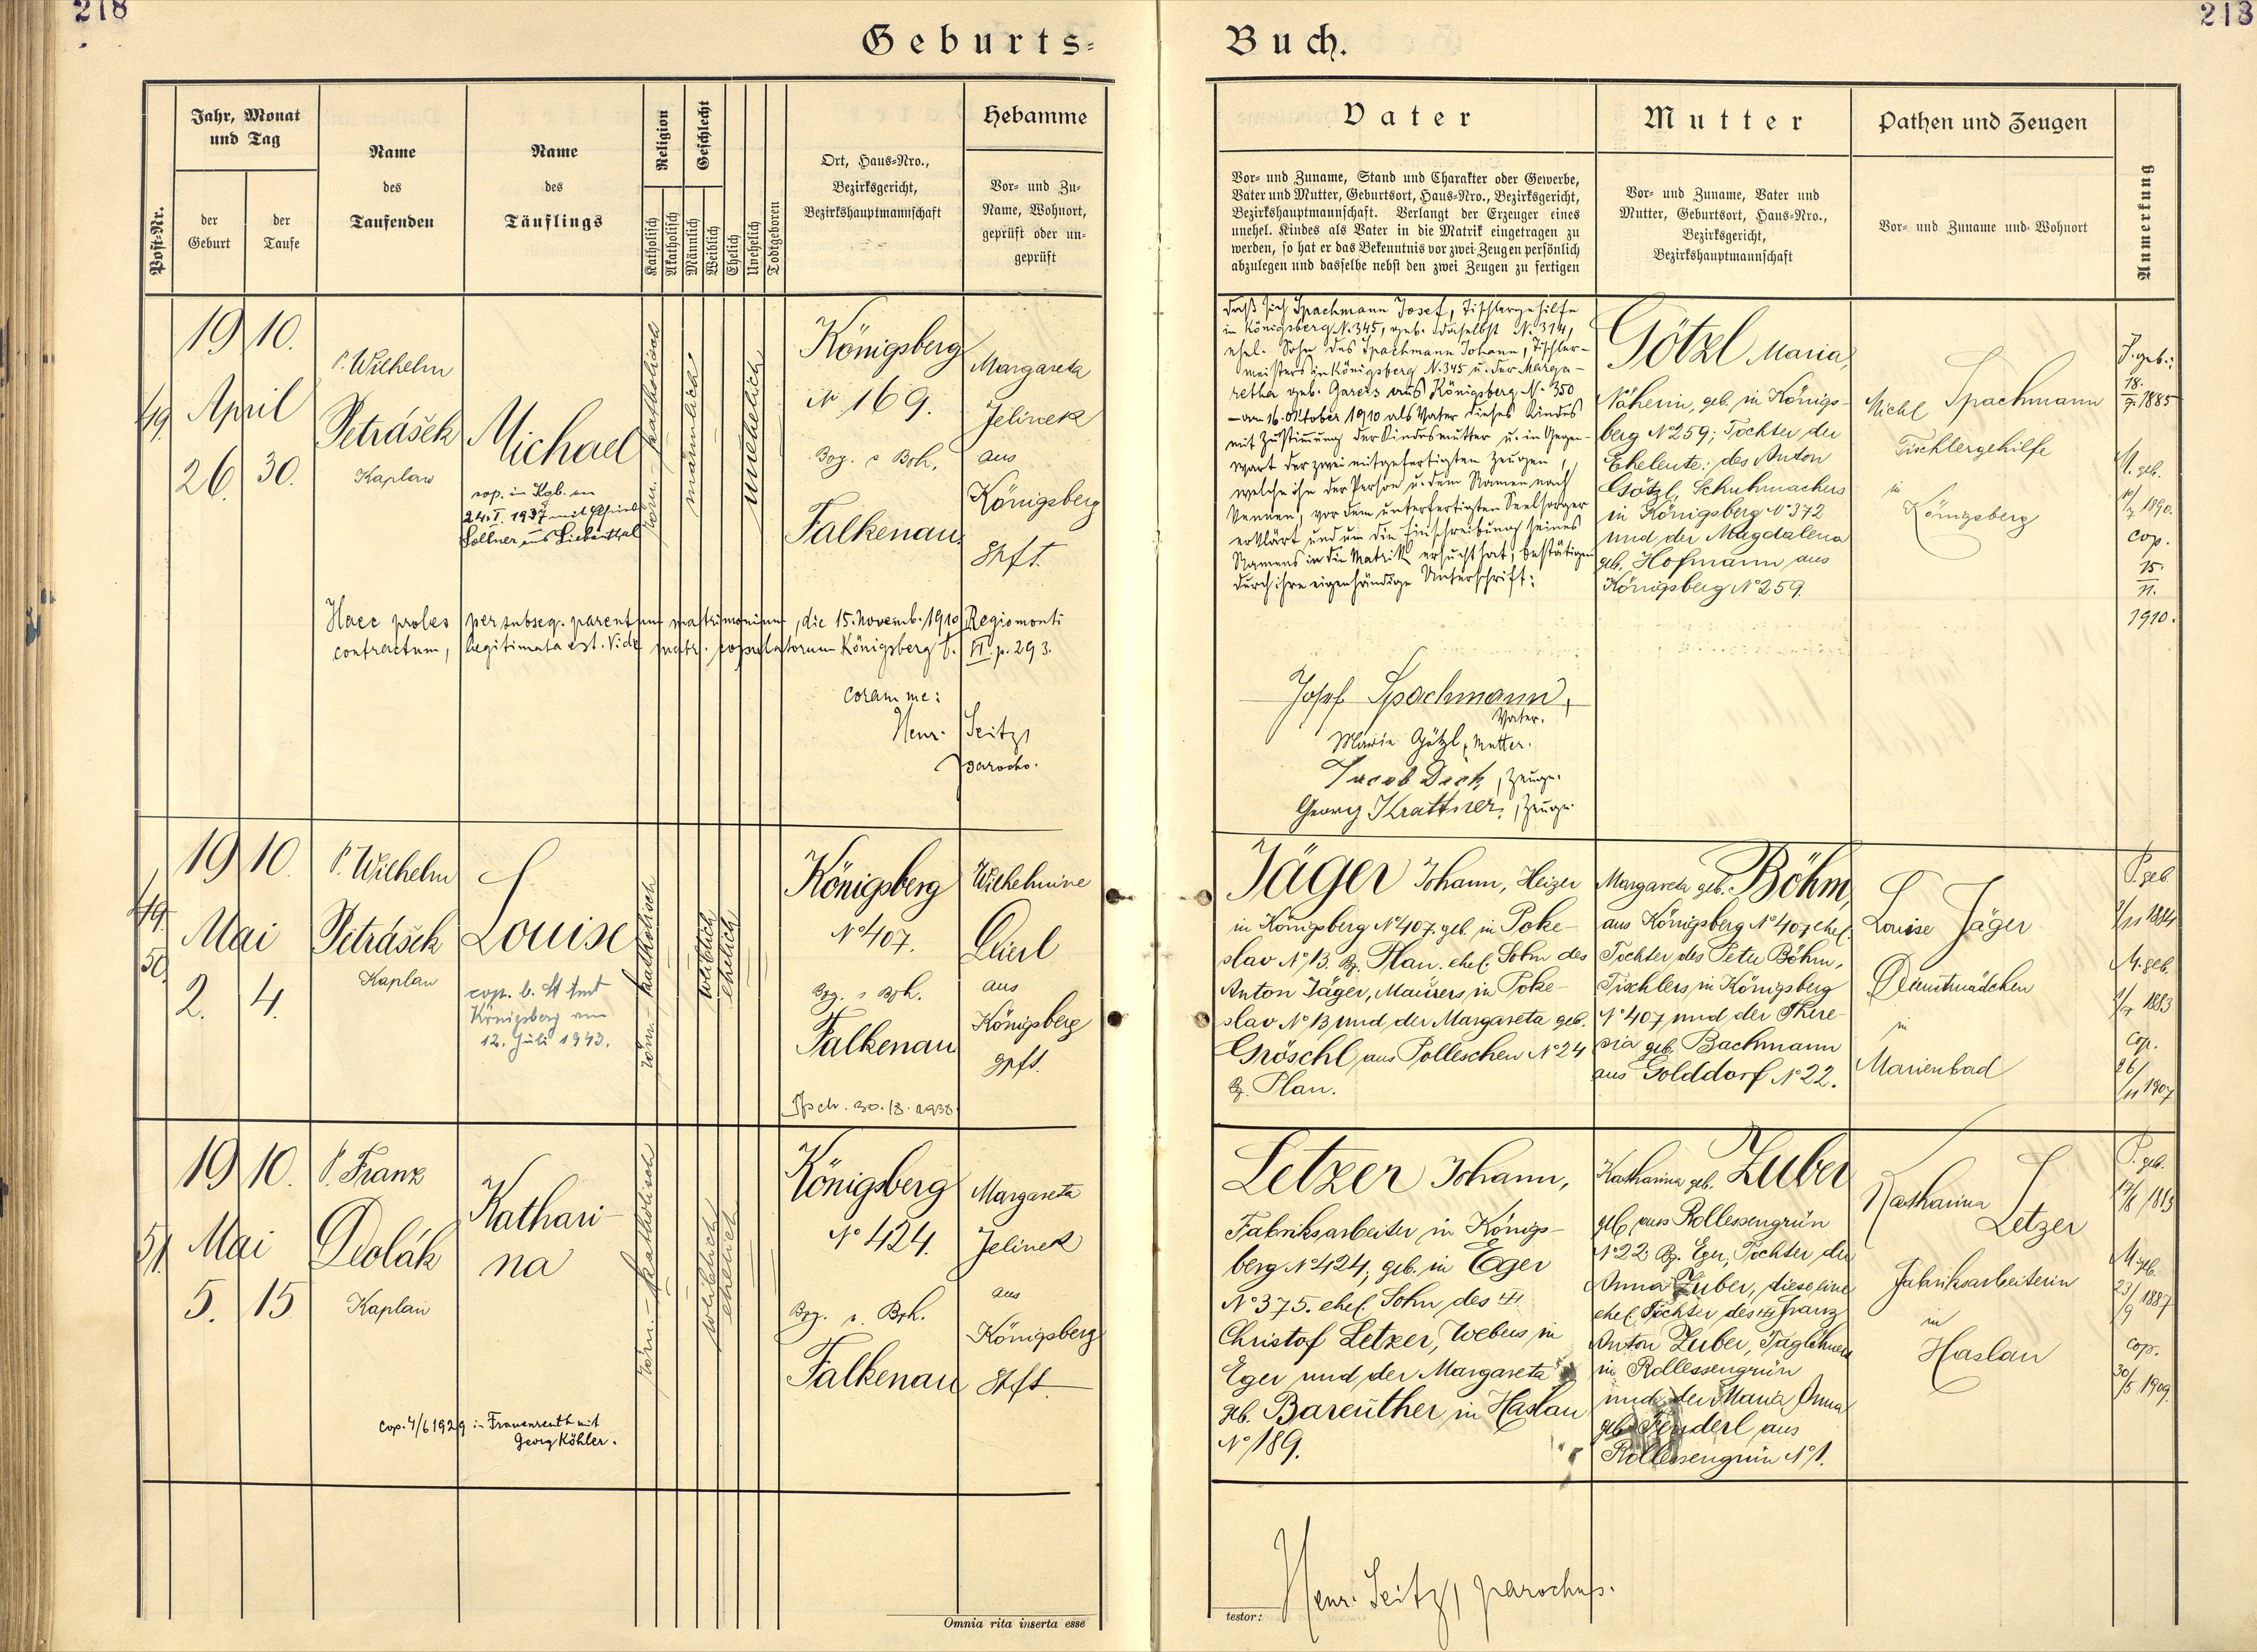 218
218
Geburts-
Buch.
Post-Nr.
Jahr, Monat
und Tag
der
Geburt
der
Taufe
Name
des
Taufenden
Name
des
Täuflings
Religion
Katholisch
Akatholisch
Geschlecht
Männlich
Weiblich
Ehelich
Unehelich
Todtgeboren
Ort, Haus-Nro.,
Bezirksgericht,
Bezirkshauptmannschaft
Hebamme
Vor- und Zu-
Name, Wohnort,
geprüft oder un-
geprüft
Vater
Vor- und Zuname, Stand und Charakter oder Gewerbe,
Vater und Mutter, Geburtsort, Haus-Nro., Bezirksgericht,
Bezirkshauptmannschaft. Verlangt der Erzeuger eines
unehel. Kindes als Vater in die Matrik eingetragen zu
werden, so hat er das Bekenntnis vor zwei Zeugen persönlich
abzulegen und dasselbe nebst den zwei Zeugen zu fertigen
Mutter
Vor- und Zuname, Vater und
Mutter, Geburtsort, Haus-Nro.,
Bezirksgericht,
Bezirkshauptmannschaft
Pathen und Zeugen
Vor- und Zuname und Wohnort
Anmerkung
49.
1910.
April
26. 30.
P. Wilhelm
Petrášek
Kaplan
Michael
cop. in Kgb. am
24.I. 1937 mit
Sollner aus Liebenthal
röm.-katholisch
männlich
unehelich
Königsberg
No 169.
Bez. u Bzh.
Falkenau.
Margareta
Jelinek
aus
Königsberg
gpft.
Haec proles per subseq. parentum matrimonium, die 15. Novemb. 1910 Regiomonti
contractum, legitimata est. Vide matr. copulatorum Königsberg t. VI. p. 293.
coram me:
Henr. Seitz,
parocho.
daß sich Spachmann Josef, Tischlergehilfe
in Königsberg N. 345, geb. daselbst N. 314,
ehel. Sohn des Spachmann Johann, Tischler-
meisters in Königsberg N. 345 u. der Marga-
retha geb. Gareis aus Königsberg N. 350
am 16. Oktober 1910 als Vater dieses Kindes
mit Zustimmung der Kindesmutter u. in Gegen-
wart der zwei mitgefertigten Zeugen,
welche ihn der Person u. dem Namen nach
kennen, vor dem unterfertigten Seelsorger
erklärt und um die Einschreibung seines
Namens in die Matrik ersucht hat, bestätigen
durch ihre eigenhändige Unterschrift:
Josef Spachmann,
Vater.
Marie Götzl, Mutter.
Jacob Deck, Zeuge.
Georg Krattner, Zeuge.
Götzl Maria,
Näherin, geb. in Königs-
berg No 259; Tochter der
Eheleute: des Anton
Götzl, Schuhmachers
in Königsberg No 372
und der Magdalena
geb. Hofmann aus
Königsberg No 259.
Michl Spachmann
Tischlergehilfe
in
Königsberg
P. geb.:
18.
9. 1885
M. geb.
1890.
cop.
15.
11.
1910.
50.
1910.
Mai
2. 4.
P. Wilhelm
Petrášek
Kaplan
Louise
cop. b. St Amt
Königsberg am
12. Juli 1943.
röm.-katholisch
weiblich
ehelich
Königsberg
No 407.
Bez. u Bzh.
Falkenau
30./8. 1938
Wilhelmine
aus
Königsberg
gpft.
Jäger Johann, Heizer
in Königsberg No 407. geb. in Poke-
slav No 13. Bz. Plan. ehel. Sohn des
Anton Jäger, Maurers in Poke-
slav No 13 und der Margareta geb.
Gröschl aus Polleschen No 24
Bz. Plan.
Margareta geb. Böhm,
aus Königsberg No 407 ehel.
Tochter des Peter Böhm,
Tischlers in Königsberg
No 407 und der There-
sia geb. Bachmann
aus Golddorf No 22.
Louise Jäger
Dienstmädchen
in
Marienbad
P. geb.
M. geb.
1883
cop.
26/
/11 1907
51.
1910.
Mai
5. 15
P. Franz
Dolák
Kaplan
Kathari-
na
cop. 4/6 1929 in Frauenreuth mit
Georg Köhler.
röm.-katholisch
weiblich
ehelich
Königsberg
No 424.
Bez. u. Bzh.
Falkenau
Margareta
Jelinek
aus
Königsberg
gpft.
Letzer Johann,
Fabriksarbeiter in Königs-
berg No 424, geb. in Eger
No 375. ehel. Sohn des
Christof Letzer, Webers in
Eger und der Margareta
geb. Bareuther in Haslau
No 189.
Katharina geb. Zuber
geb. aus Rollessengrün
No 22 Bz. Eger, Tochter der
Anna Zuber, diese eine
ehel. Tochter des Franz
Anton Zuber, Taglöhners
in Rollessengrün
und der Maria Anna
geb. Fenderl aus
Rollessengrün No 1.
Katharina Letzer
Fabriksarbeiterin
in
Haslau
P. geb.
M. geb.
23/
/9 1887
cop.
30/
/5 1909.
Omnia rita inserta esse
testor:
Henr. Seitz, parochus.